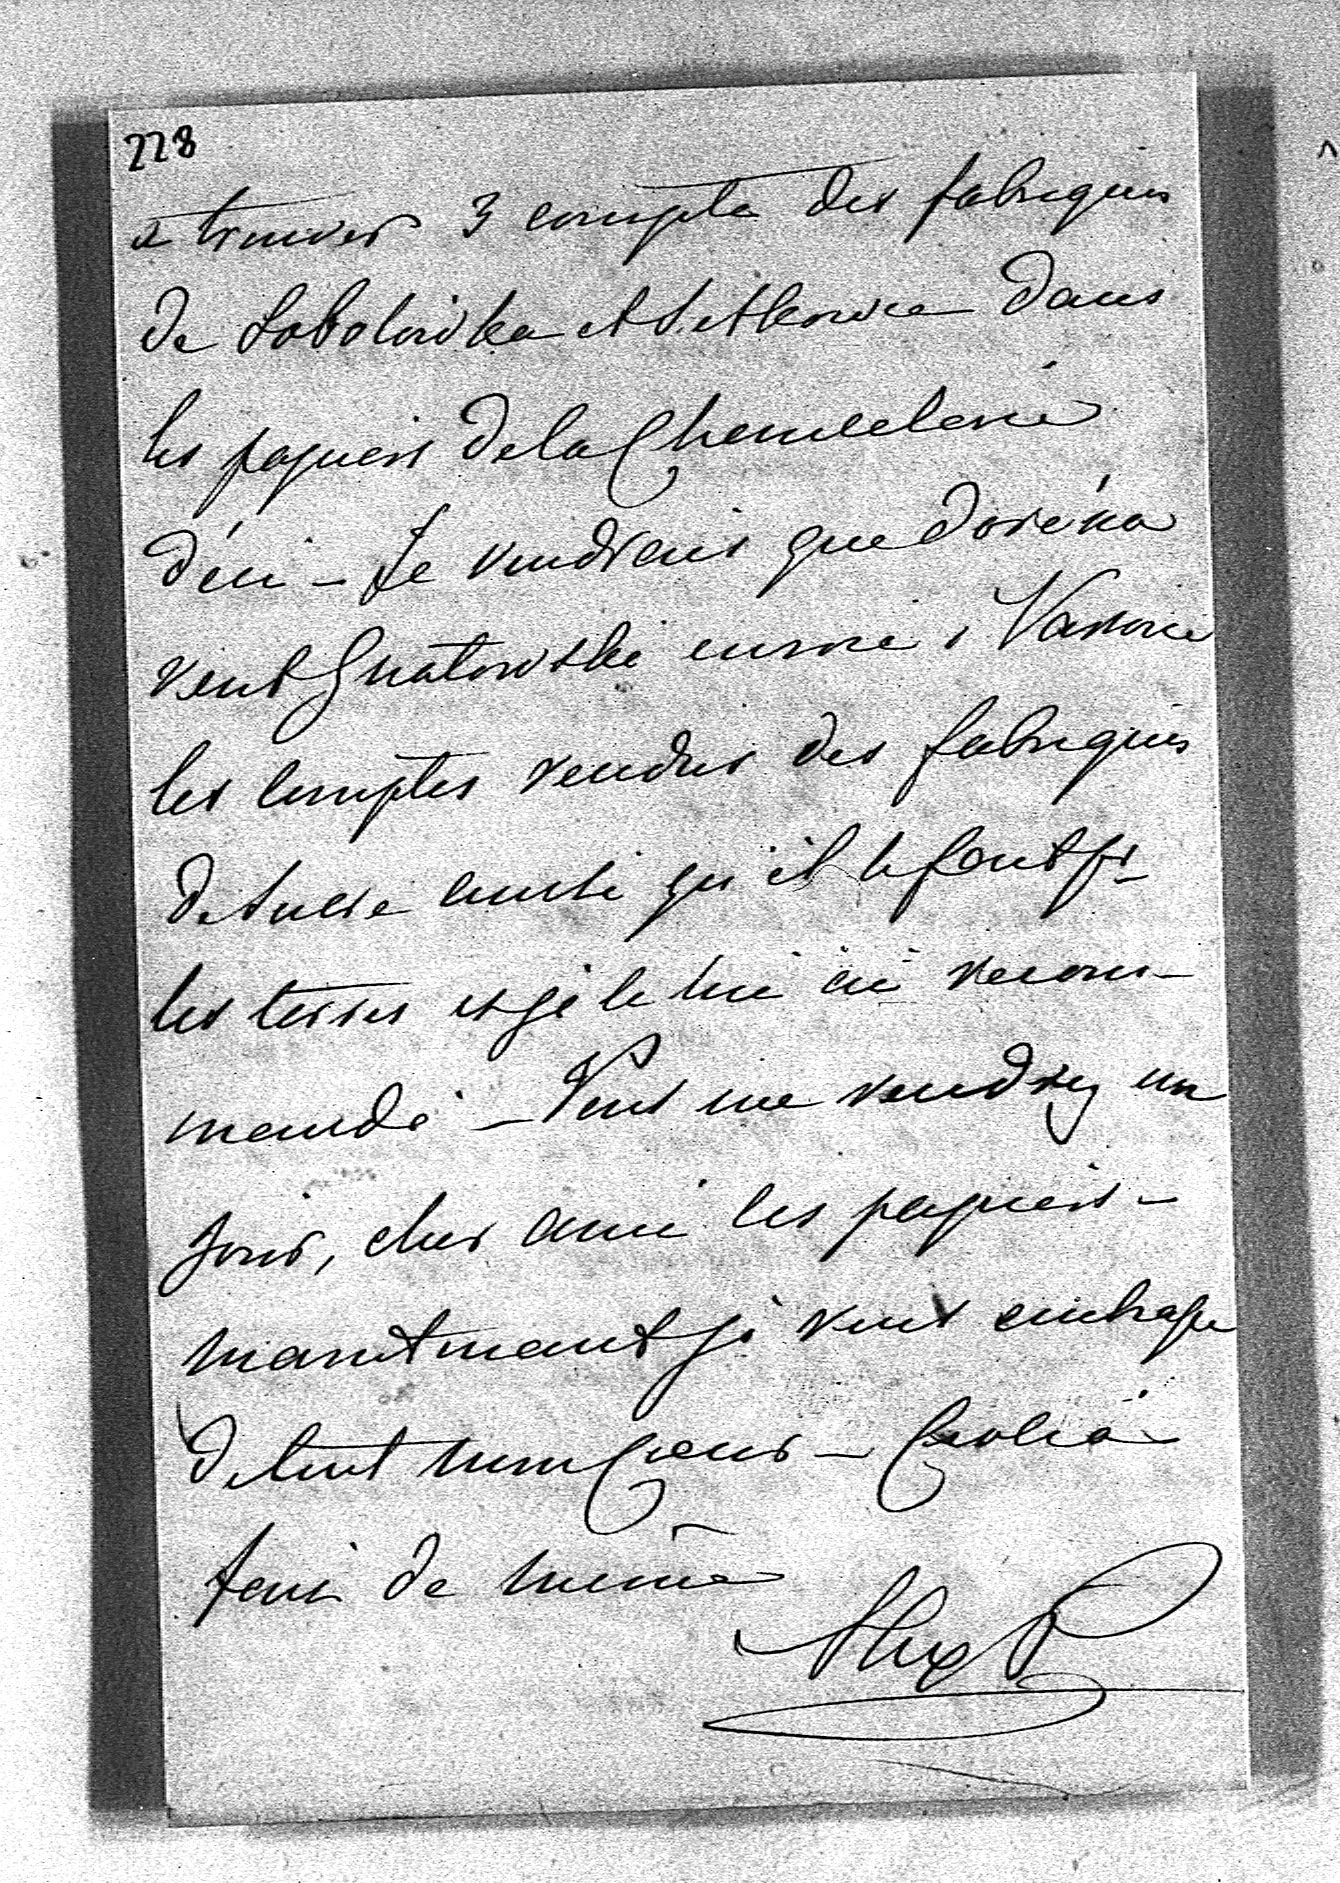 228
a trouver 3 compte des fabriques
de Sobolowka et Sitkowce dans
les papiers de la Chancelerie
d'ici – Je voudrais que doréna
vent Gnatowski envoie à Varsovie
les comptes rendus des fabriques
de sucre aussi qu'il le font pr
les terres et je le lui ai recom-
mandé – Vous me rendrez un
jour, cher ami les papiers –
Maintmant je vous embrasse
de tout mon Coeur –
fait de même
Alex P